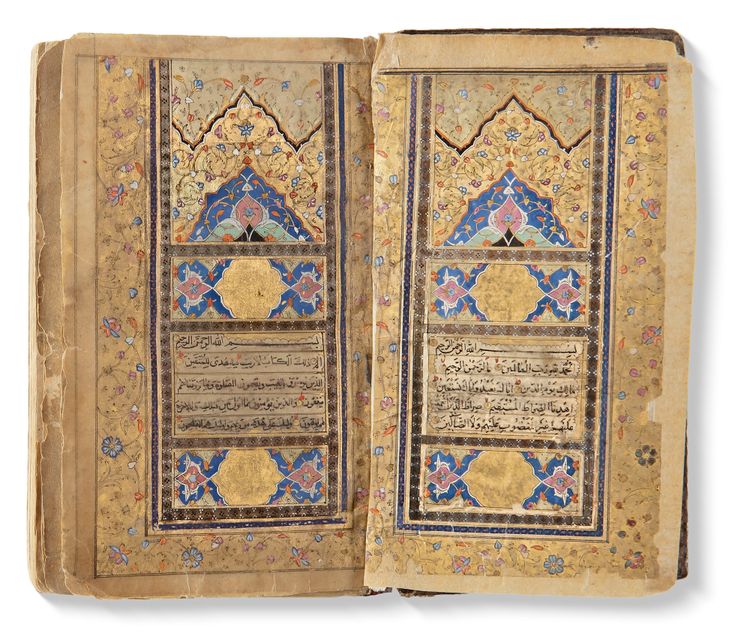 بسم الله الرحمن الرحيم
الحمد لله رب العالمين الرحمن الرحيم
مالك يوم الدين اياك نعبد واياك نستعين
اهدنا الصراط المستقيم صراط الذين انعمت
عليهم غير المغضوب عليهم ولا الضالين
بسم الله الرحمن الرحيم
الم ذلك الكتاب لا ريب فيه هدى للمتقين
الذين يؤمنون بالغيب ويقيمون الصلوة ومما رزقناهم
ينفقون والذين يؤمنون بما انزل اليك وما انزل
يوقنون اولئك على هدى من ربهم واولئك هم المفلحون